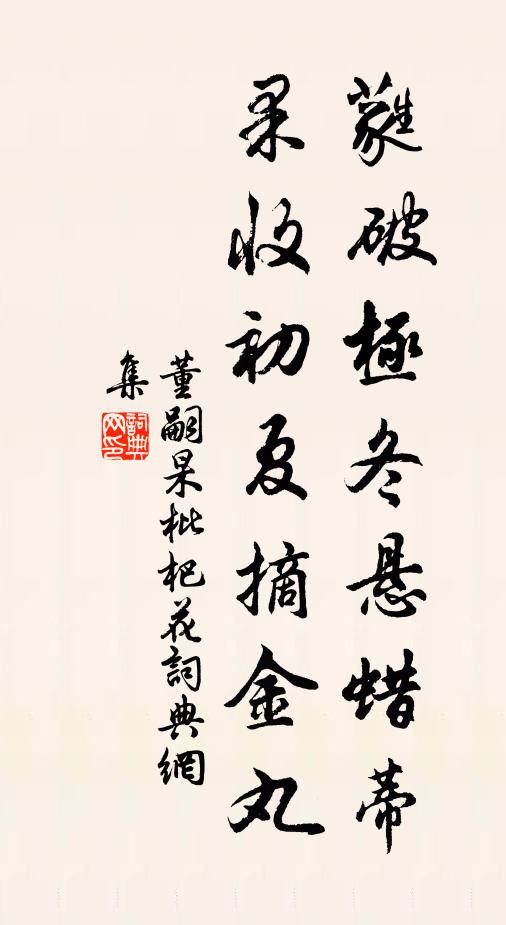 蕤破極冬悬蜡蒂
果收初夏摘金丸
董嗣杲枇杷花詞典網
集
詞典網印